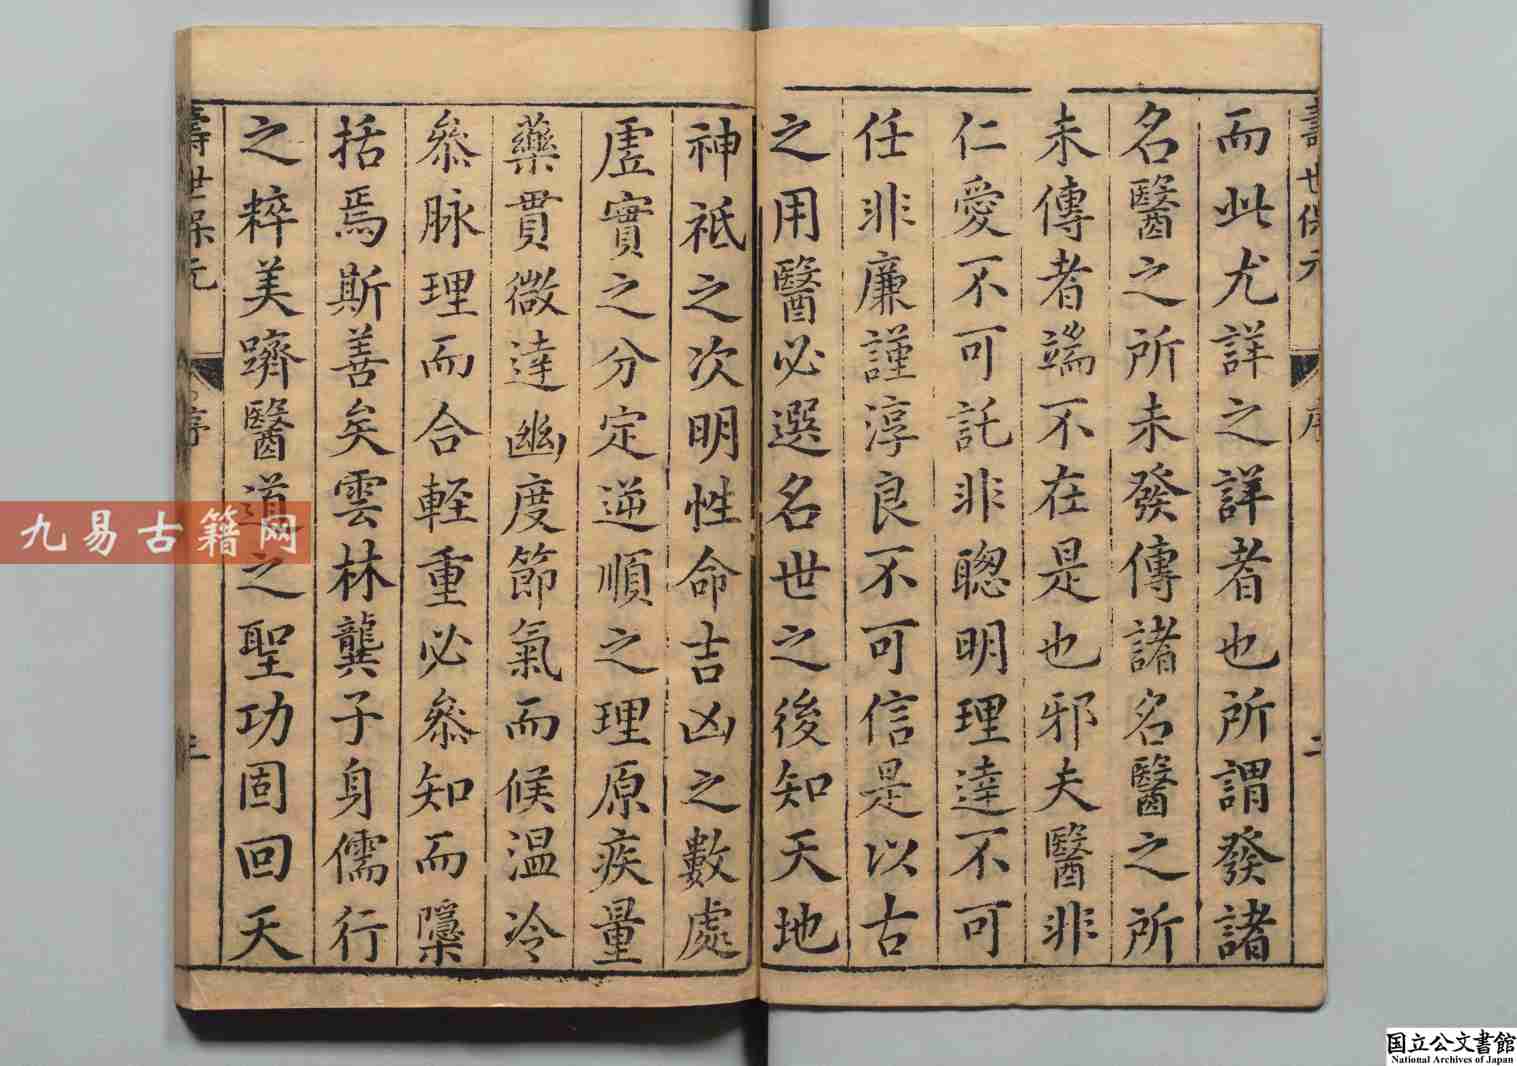 壽世保元
序
二
而此尤詳之詳者也所謂發諸
名醫之所未發傳諸名醫之所
未傳者端不在是也邪夫醫非
仁愛不可託非聰明理達不可
任非廉謹淳良不可信是以古
之用醫必選名世之後知天地
神祇之次明性命吉凶之數處
虛實之分定逆順之理原疾量
藥貫微達幽度節氣而候温冷
叅脉理而合輕重必叅知而隱
括焉斯善矣雲林龔子身儒行
之粹美躋醫道之聖功固回天
壽世保元
序
三
九易古籍网
国立公文書館
National Archives of Japan